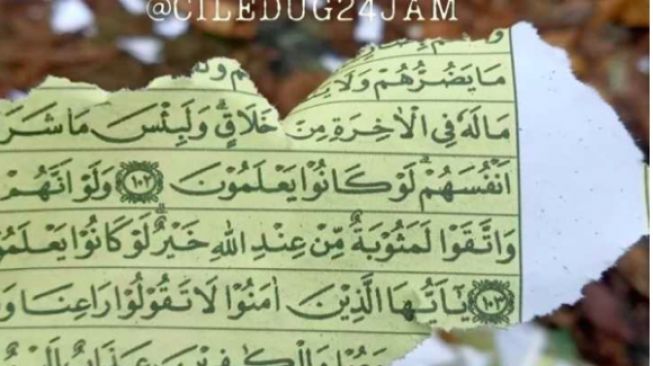 @CILEDUG24JAM
مَا يَضُرُّهُمْ وَلَا
مَا لَهٗ فِى الْاٰخِرَةِ مِنْ خَلَاقٍۗ وَلَبِئْسَ مَا شَرَ
اَنْفُسَهُمْۗ لَوْ كَانُوْا يَعْلَمُوْنَ ١٠٢ وَلَوْ اَنَّهُمْ
وَاتَّقَوْا لَمَثُوْبَةٌ مِّنْ عِنْدِ اللّٰهِ خَيْرٌۗ لَوْ كَانُوْا يَعْلَمُوْ
١٠٣ يٰٓاَيُّهَا الَّذِيْنَ اٰمَنُوْا لَا تَقُوْلُوْا رَاعِنَا وَ